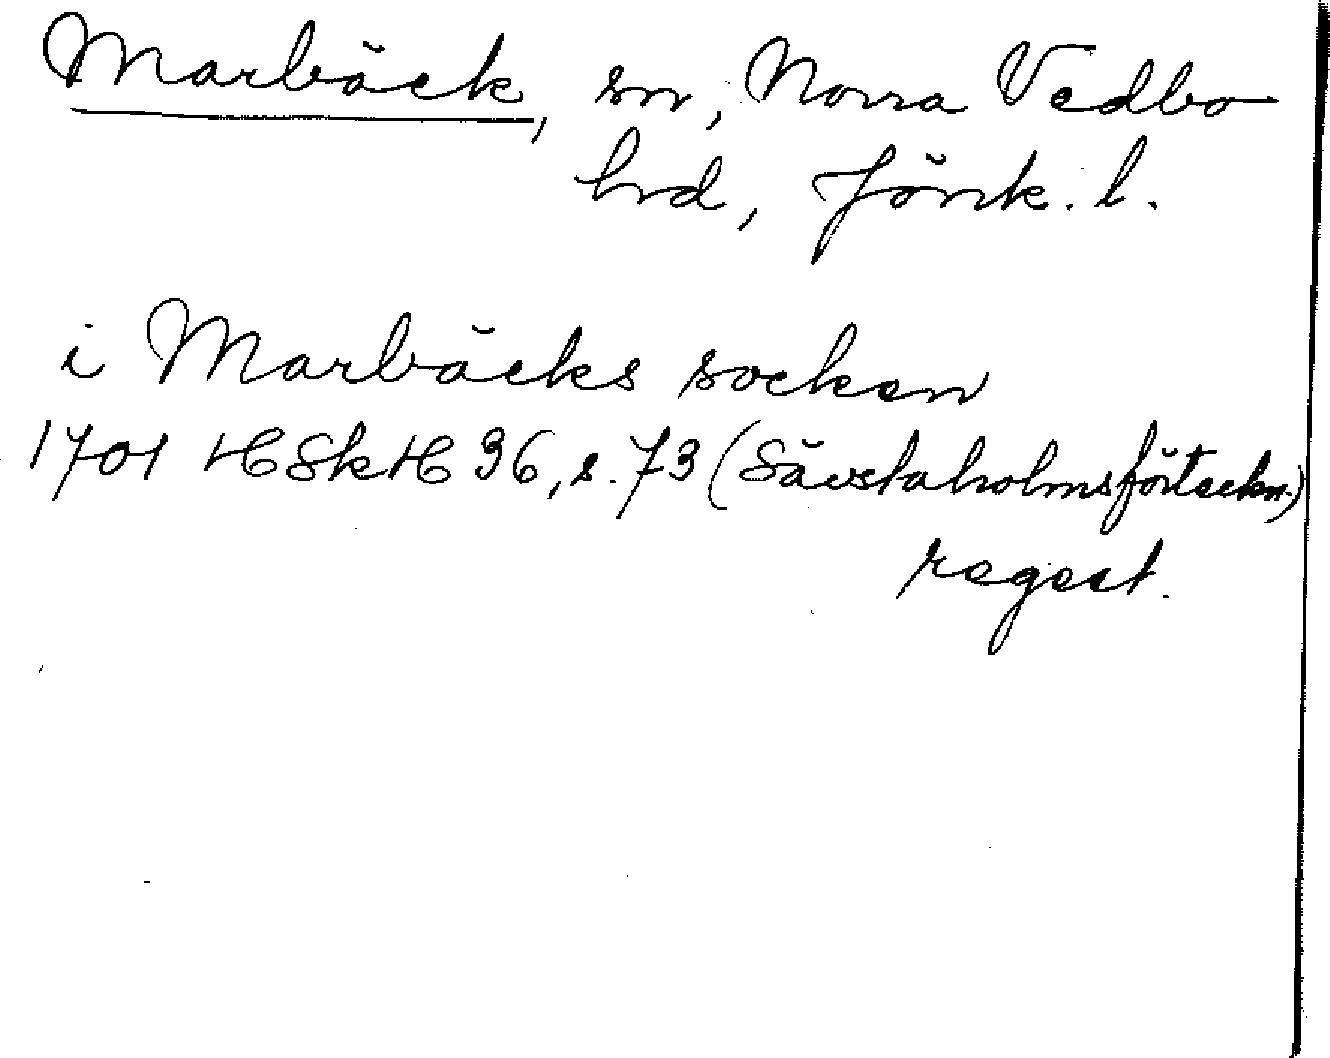 Marbäck, sn, Norra Vedbo
hrd, Jönk. l.
i Marbäcks socken
1701 HSkH 36, s. 73 (Sävstaholmsförteckn.)
regest.